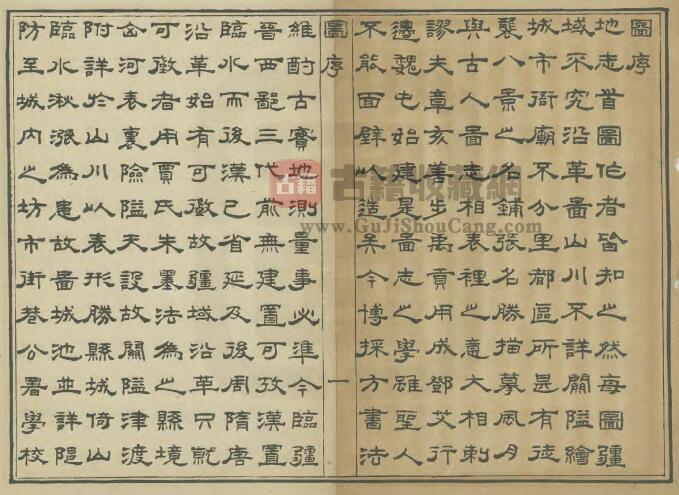 圖序
地志首圖作者皆知之然每圖疆
域不究沿革圖山川不詳關隘繪
城市衙廟不分里都區所甚有徒
襲八景之名鋪張名勝描摹風月
與古人圖志相表裡之意大相剌
謬夫章亥善步禹貢用成鄧艾行
邊魏屯始建是圖志之學雖聖人
不能面壁以造矣今博採方書法
圖序
一
維酌古實地測量事必準今臨疆
晉西鄙三代前無建置可攷漢置
臨水而後漢已省延及後周隋唐
沿革始有可徵故疆域沿革只就
可徵者用賈氏朱墨法為之縣境
山河表裏險隘天設故關隘津渡
附詳於山川以表形勝縣城倚山
臨水湫漲為患故圖城池並詳隄
防至城內之坊市街巷公署學校
古籍
古籍收藏網
www.GuJiShouCang.com